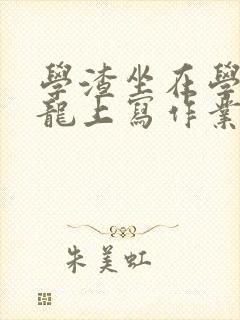 學渣坐在學
龍上寫作業
朱美虹